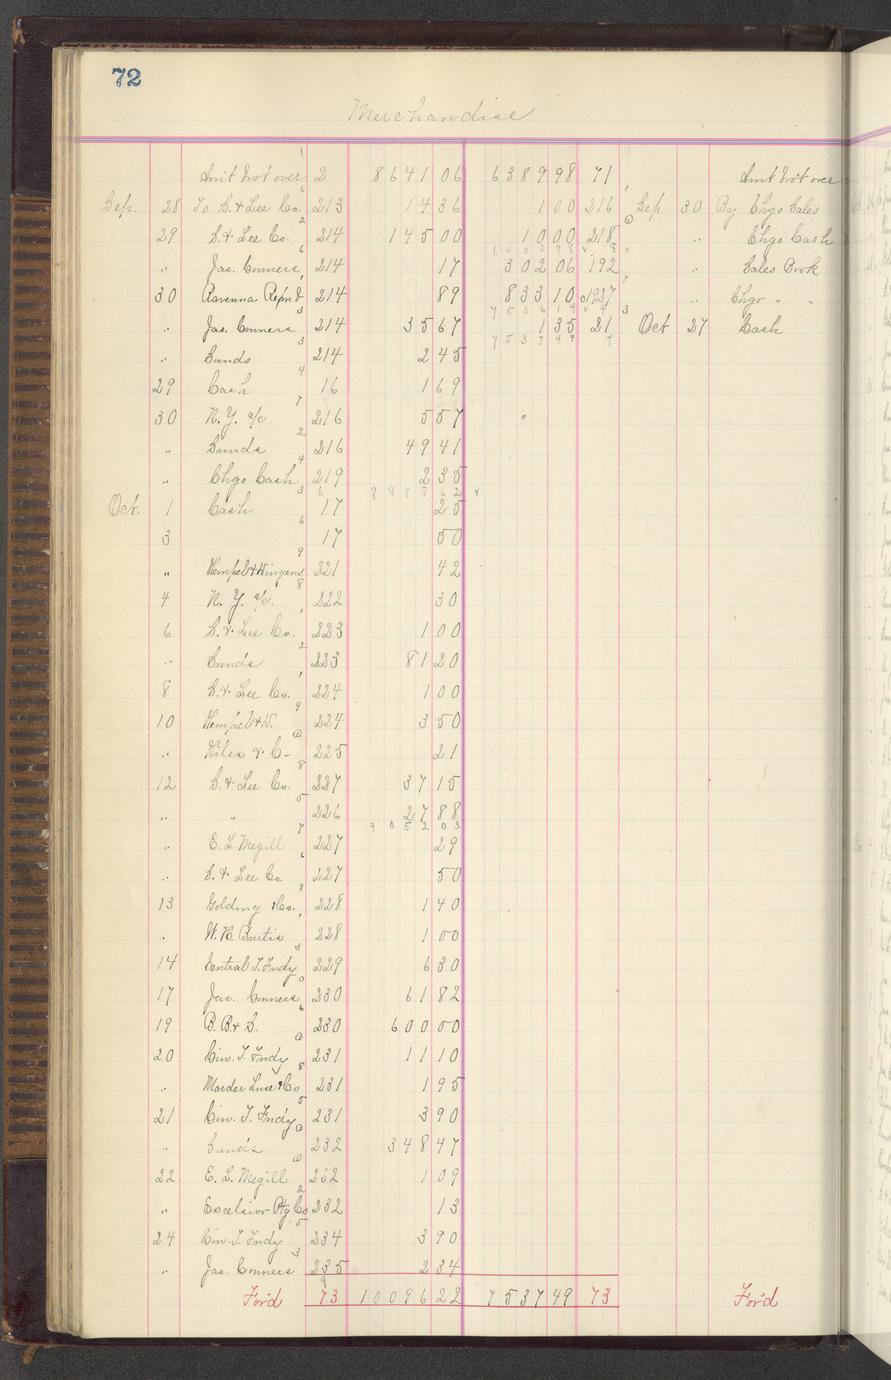 72
Merchandise
Amt brot over 2 8641 06 6389 98 71 Amt brot over
Sep. 28 To B. & Lee Co. 213 14 36 1 00 216 Sep 30 By Chgo Sales
29 B. & Lee Co. 214 145 00 10 00 218 " Chgo Cash
" Jas. Conners 214 17 302 06 192 " Sales Book
30 Ravenna Repub 214 89 833 10 1927 " Chgo " "
" Jas. Conners 214 35 67 1 35 21 Oct 27 Cash
" Sunds 214 2 45 7537 49
29 Cash 16 1 69
30 N. Y. a/c 216 5 57
" Sunds 216 49 41
" Chgo Cash 219 2 35
8888 62
Oct. 1 Cash 17 25
3 17 50
" Hempel & Wingens 221 42
4 N. Y. a/c. 222 30
6 B. & Lee Co. 223 1 00
" Sunds 223 81 20
8 B. & Lee Co. 224 1 00
10 Hempel & W. 224 3 50
" Hiles & C- 225 21
12 B. & Lee Co. 227 37 15
" " 226 27 88
9052 03
" E. L. Megill 227 29
" B. & Lee Co. 227 50
13 Golding & Co. 228 1 40
" W. H. 228 1 00
14 Central T. Fndy 229 6 30
17 Jas. Conners 230 61 82
19 B. B. & S. 230 600 00
20 Cin. T. Fndy 231 11 10
" Marder Luse & Co 231 1 95
21 Cin. T. Fndy 231 3 90
" Sunds 232 348 47
22 E. L. Megill 232 1 09
" Excelsior Ptg Co 232 13
24 Cin. T. Fndy 234 3 90
" Jas. Conners 235 2 34
For'd 73 10096 22 7537 49 73 For'd